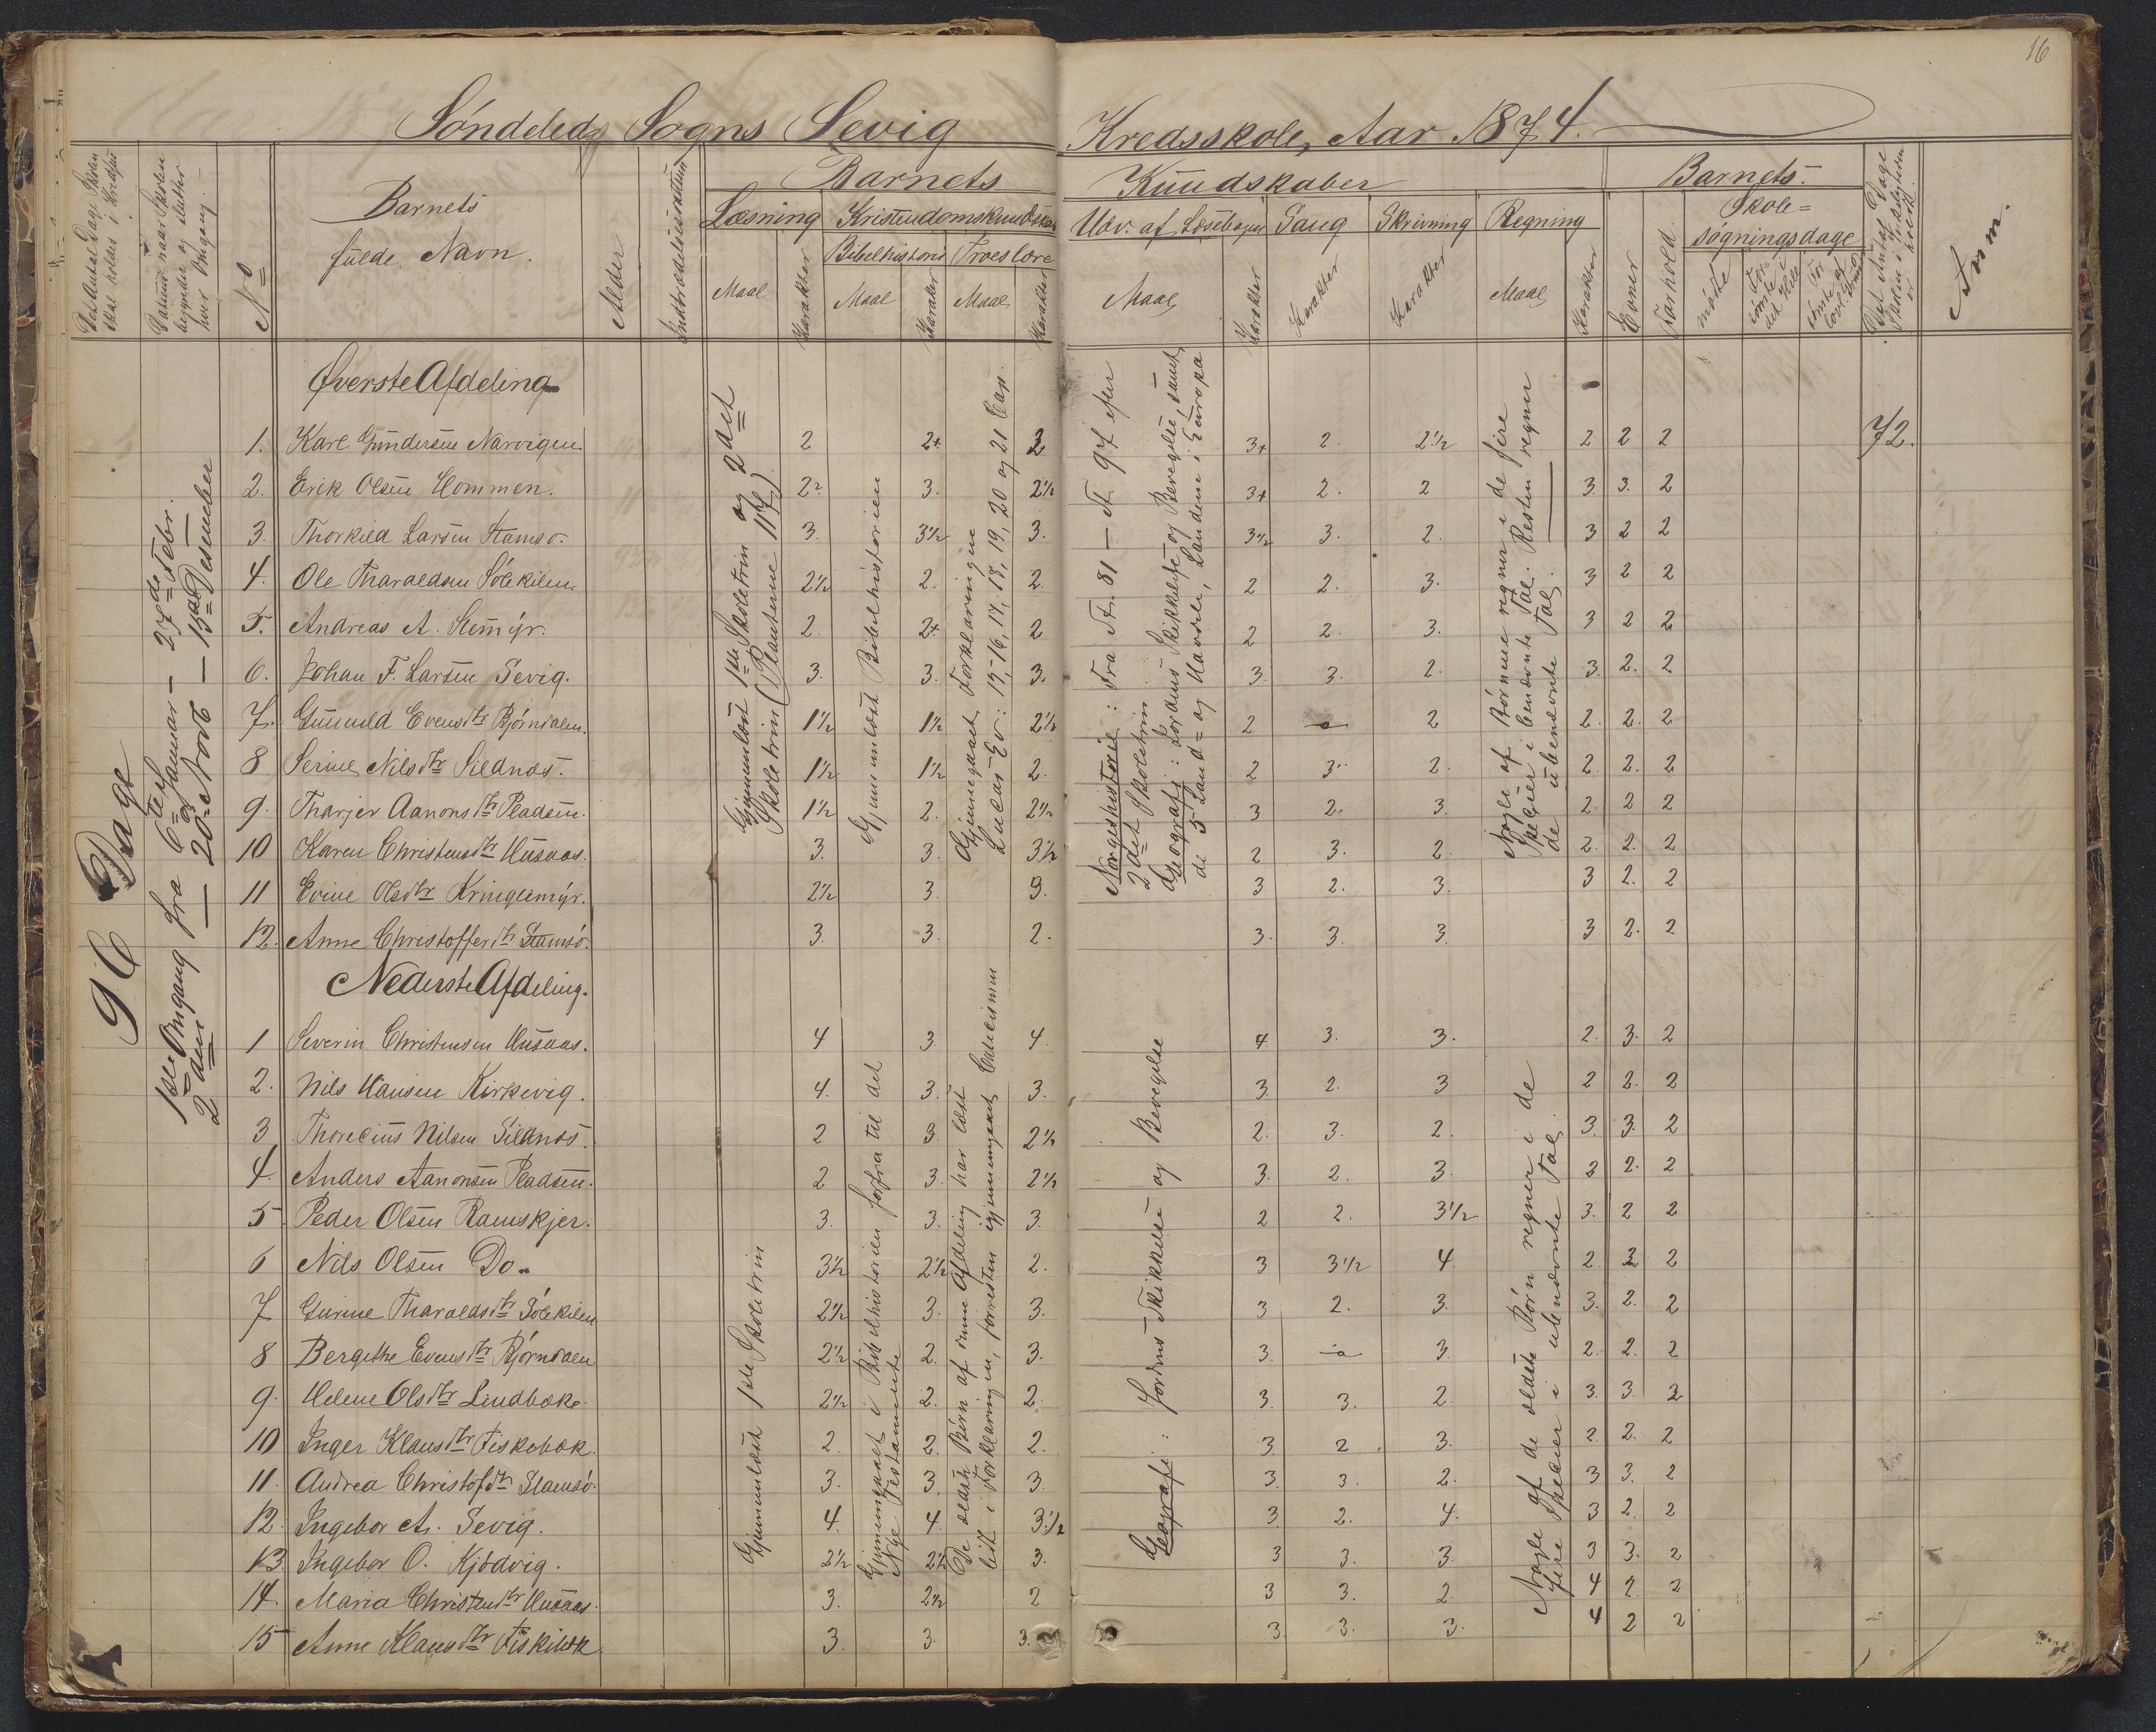 16
Søndeleds Sogns Sevig Kredsskole, Aar 1874.
Det Antal Dage Skolen skal holdes i Kredsen
Datum naar Skolen begynder og slutter hver Omgang.
No
Barnets fulde Navn.
Alder
Indtrædelsesdatum
Barnets Kundskaber
Læsning
Maal
Karakter
Kristendomskundskab
Bibelhistorie
Maal
Karakter
Troeslære
Maal
Karakter
Udv. af Læsebogen
Maal
Karakter
Sang
Karakter
Skrivning
Karakter
Regning
Maal
Karakter
Evner
Forhold.
Barnets
Skolesøgningsdage
mødte
Anm.
96 Dage
1ste Omgang fra 6te Januar — 27de Febr.
2den — 20 Novb — 15de Desember
Øverste Afdeling
Gjennemlæst 1ste Skoletrin og 2det Skoletrin (Planterne 117)
Gjennemlæst Bibelhistorien
Gjennemgaaet Forklaringen
Lucas Ev: 15, 16, 17, 18, 19, 20 og 21 Cap.
Norgeshistorie: Fra St. 81 — St. 97 efter 2det Skoletrin
Geografi: Jordens Skikkelse og Bevægelse samt de 5 Land= og Havdele, Landene i Europa
Nogle af Børnene regner i de fire Spesier i benævnte Tal. Resten regner de ubenævnte Tal.
1. Karl Gundersen Narvigen 2 2+ 3 3+ 2. 2½ 2 2 2 72.
2. Erik Olsen Hommen. 2 3. 2½ 3+ 2. 2 3 3. 2
3. Thorkild Larsen Stamsø. 3. 3½ 3. 3½ 3. 2. 3 2 2
4. Ole Tharaldsen Sølekilen 2½ 2. 2. 2 2. 3. 3 2 2
5. Andreas A. Stemyr. 2 2+ 2 2 2. 3. 3 2 2
6. Johan F. Larsen Sevig. 3. 3. 3. 3. 3. 2. 3. 2. 2
7. Gunnild Evensdtr Bjørndalen. 1½ 1½ 2½ 2 a 2 2. 2. 2
8 Serine Nilsdtr Sildnæs. 1½ 1½ 2. 2 3 2. 2. 2. 2
9. Tharjer Aanonsdtr Pladsen. 1½ 2. 2½ 3 2. 3. 2. 2 2
10 Karen Christensdtr Husaas. 3. 3. 3½ 2 3. 2. 2. 2. 2
11 Evine Olsdtr Kringlemyr. 2½ 3. 3. 3 2. 3. 3 2. 2
12. Anne Christoffersdtr Stamsø. 3. 3. 2. 3. 3. 3. 3. 2. 2
Nederste Afdeling.
Gjennemlæst 1ste Skoletrin
Gjennemgaaet i Bibelhistorien forfra til det Nye Testamente
De ældste Børn af denne Afdeling har læst lidt i Forklaringen, forresten igjennemgaaet Catecismen
Geografi: Jordens Skikkelse og Bevægelse
Nogle af de ældste Børn regner i de fire Spesier i ubenævnte Tal
1 Severin Christensen Husaas. 4 3. 4. 4 3. 3. 2. 3. 2
2. Nils Hansen Kirkevig. 4. 3. 3. 3. 2. 3 2 2. 2
3 Thorelius Nilsen Sildnæs. 2 3. 2½ 2. 3. 2. 3. 3. 2
4. Anders Aanonsen Pladsen. 2 3. 2½ 3. 2. 3. 2 2. 2
5 Peder Olsen Ramskjer. 3. 3. 3. 2 2. 3½ 3. 2 2
6 Nils Olsen Do. 3½ 2½ 2. 3 3½ 4. 2. 2 2
7 Gurine Tharaldsdtr Sølekilen 2½ 3. 3. 3 2. 3. 3. 2. 2
8 Bergithe Evensdtr Bjørndalen 2½ 2. 3. 3. a 3. 2. 2. 2
9. Helene Olsdtr Lindbæk. 2½ 2. 2. 3. 3. 2. 3. 3. 2
10 Inger Klausdtr Fiskebæk. 2. 2. 2. 3. 2. 3. 2. 2. 2
11. Andrea Christofdtr Stamsø. 3. 3. 3. 3. 3. 2. 3 3. 2
12. Ingebor A. Sevig. 4. 4. 3½ 3. 2. 4. 3 2. 2
13. Ingebor O. Kjødvig. 2½ 2½ 3. 3 3. 3. 3 3. 2
14. Maria Christensdtr Husaas. 3. 2½ 2 3 3. 2. 4 2. 2
15 Anne Klausdtr Fiskebæk 3. 3. 3. 3. 3. 3. 4 2 2